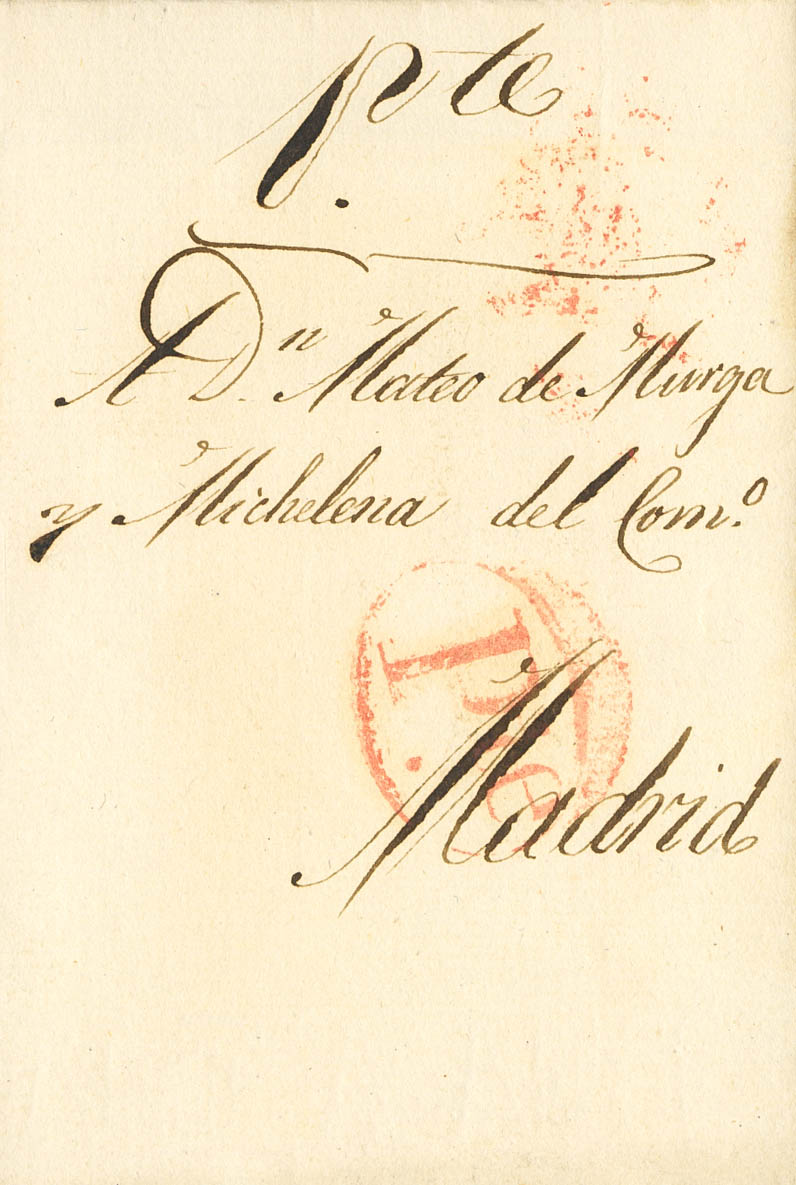 Pte.
A Dn. Mateo de Murga
y Michelena del Comº.
P.te
Madrid